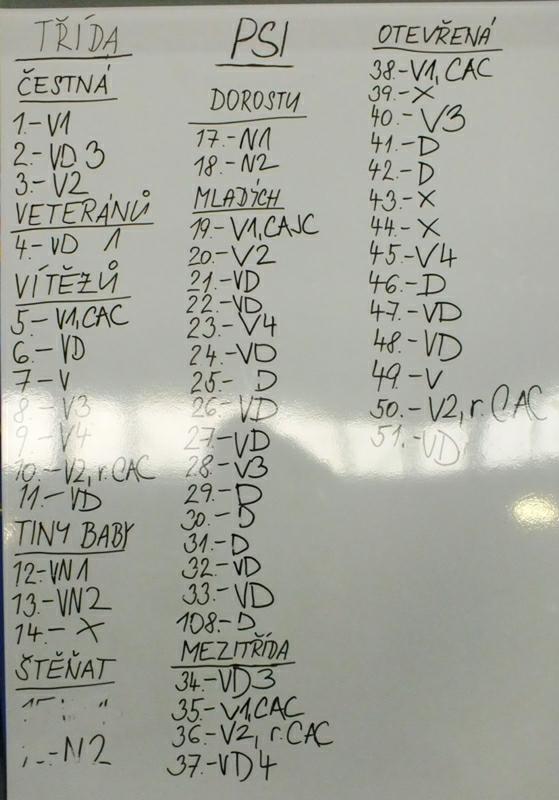 TŘÍDA
ČESTNÁ
1.-V1
2.-VD 3
3.-V2
VETERÁNŮ
4.-VD 1
VÍTĚZŮ
5.-V1,CAC
6.-VD
7-V
8-V3
9-V4
10.-V2,r.CAC
11.-VD
TINY BABY
12-VN1
13.-VN2
14.-X
ŠTĚŇAT
-N2
PSI
DOROSTU
17.-N1
18.-N2
MLADÝCH
19.-V1,CAJC
20.-V2
21.-VD
22.-VD
23.-V4
24.-VD
25.-D
26.-VD
27.-VD
28.-V3
29.-D
30.-D
31.-D
32.-VD
33.-VD
108.-D
MEZITŘÍDA
34.-VD3
35.-V1,CAC
36.-V2, r.CAC
37.-VD4
OTEVŘENÁ
38.-V1,CAC
39.-X
40.-V3
41.-D
42.-D
43.-X
44.-X
45.-V4
46.-D
47.-VD
48.-VD
49.-V
50.-V2,r.CAC
51.-VD